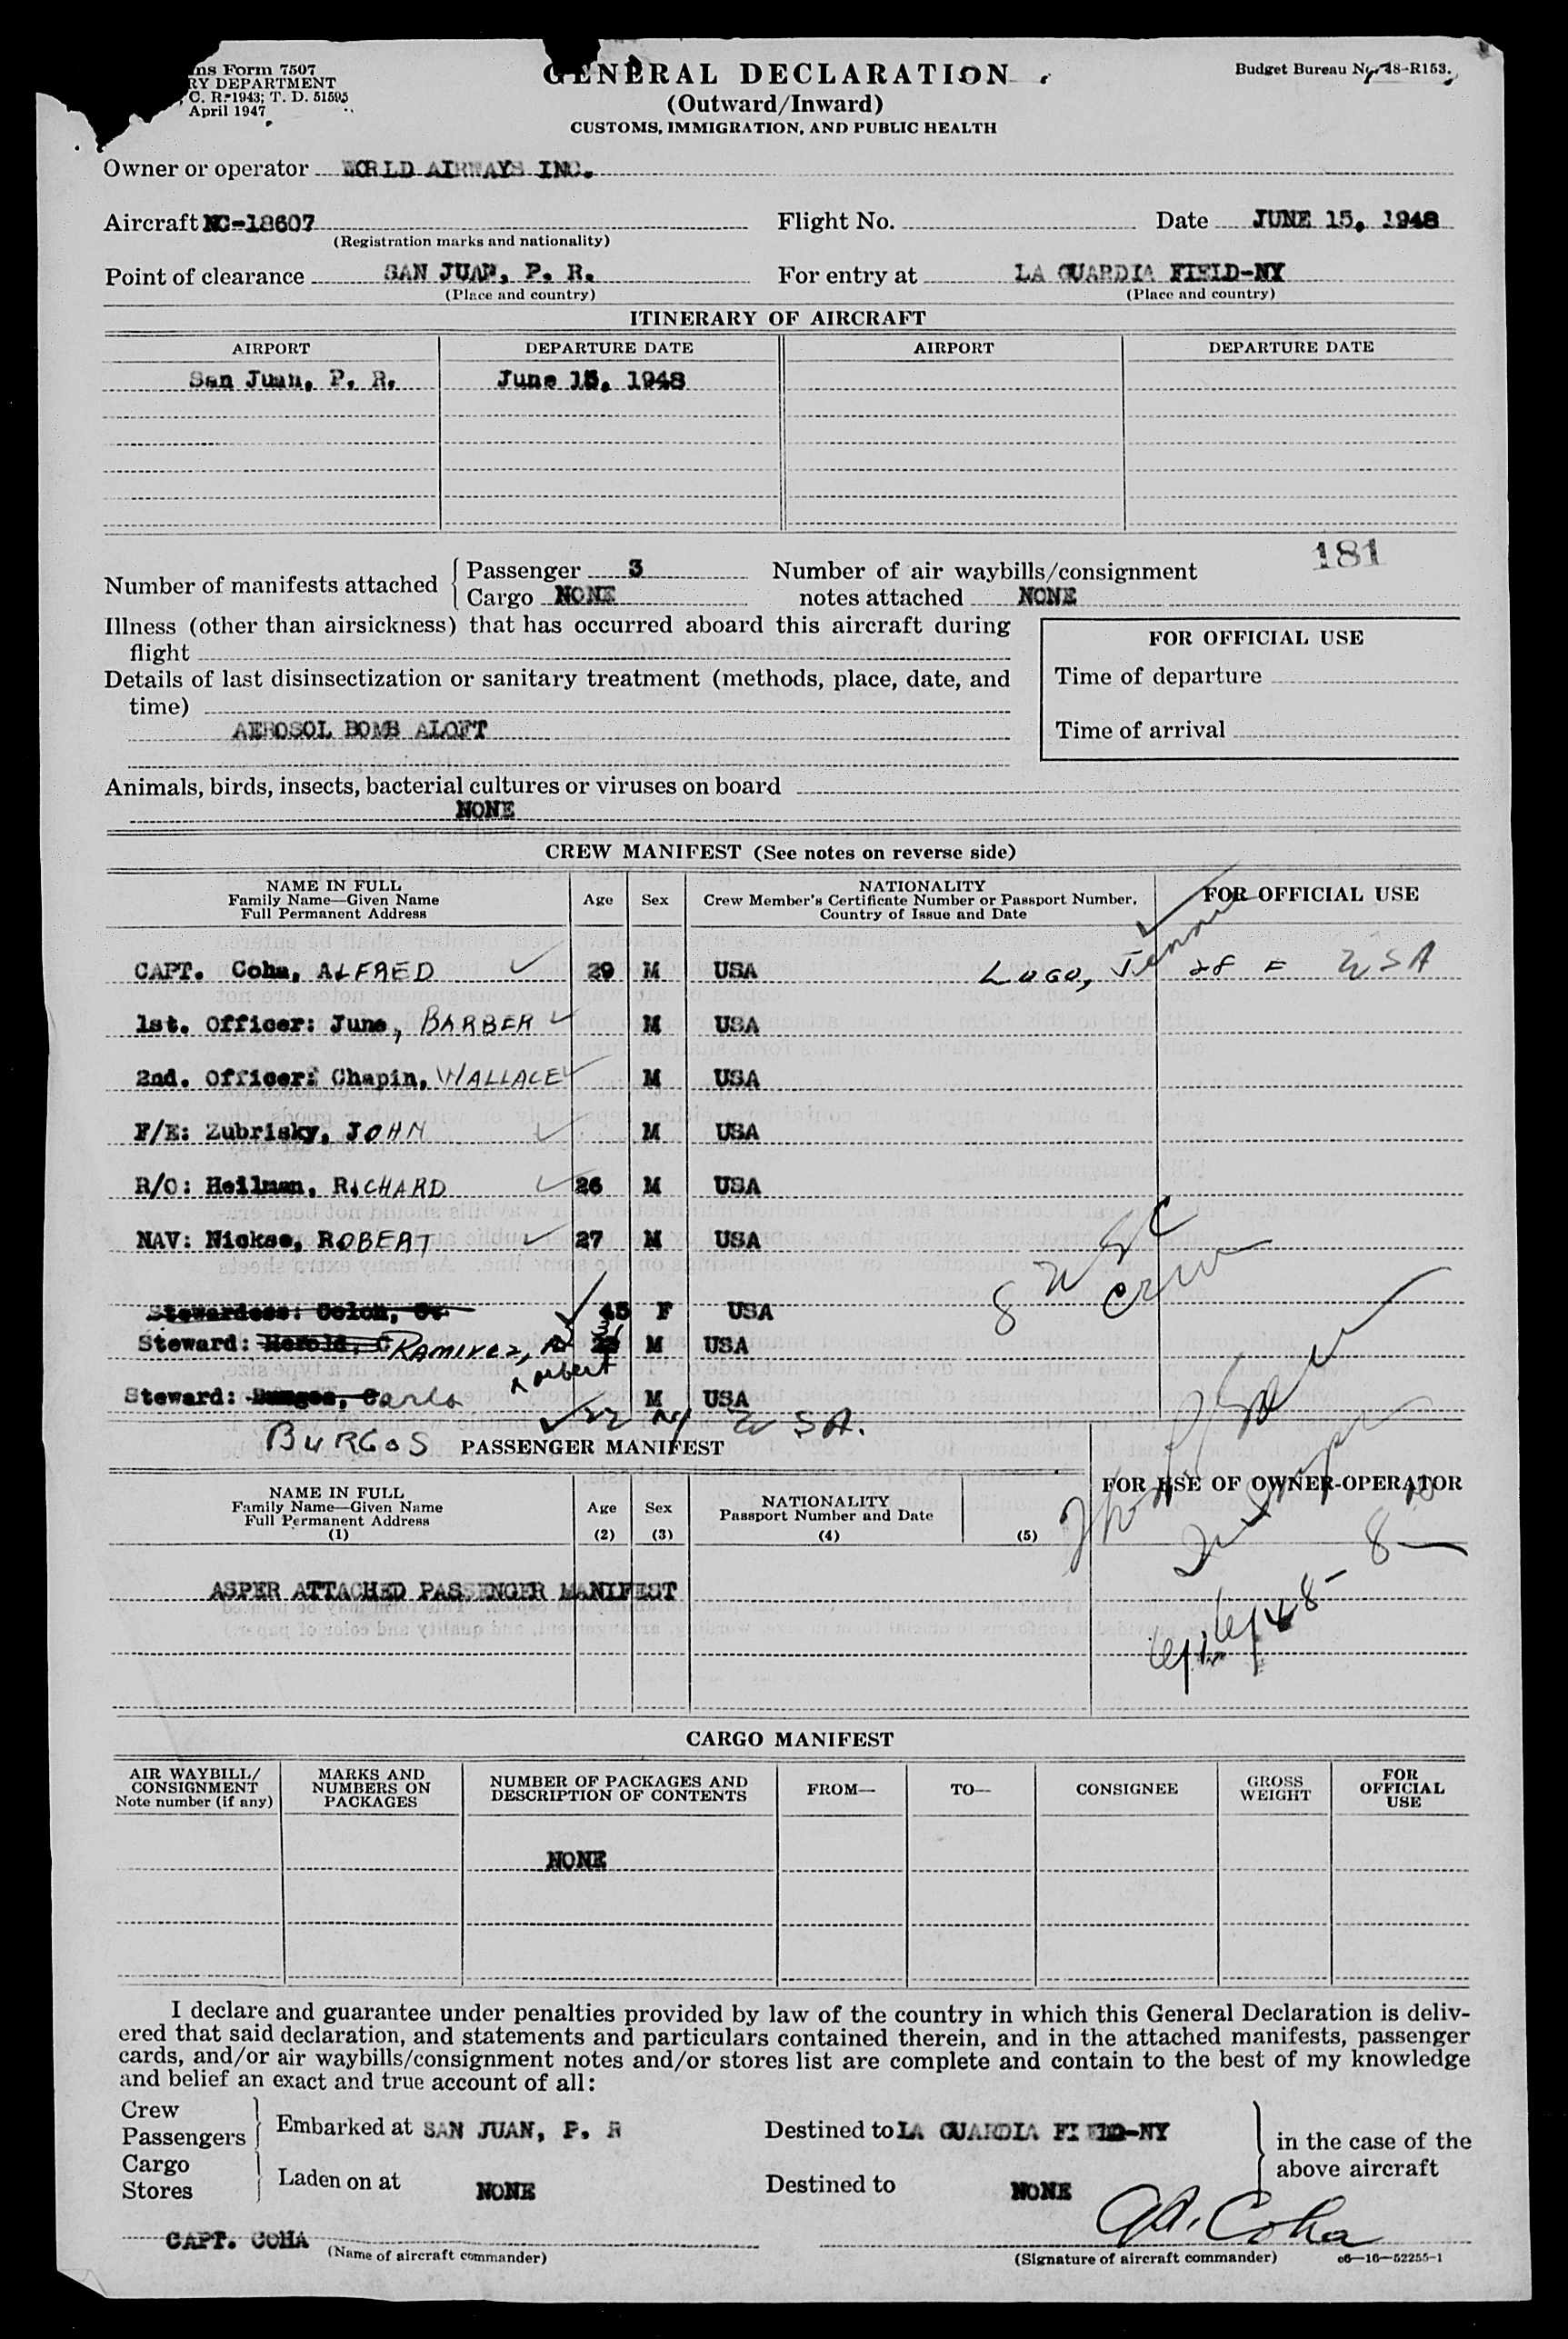 ns Form 7507
RY DEPARTMENT
C. R. 1943; T. D. 51595
April 1947
GENERAL DECLARATION
(Outward/Inward)
CUSTOMS, IMMIGRATION, AND PUBLIC HEALTH
Budget Bureau No. 48-R153.
Owner or operator WORLD AIRWAYS INC.
Aircraft NC-18607 Flight No. Date JUNE 15, 1948
(Registration marks and nationality)
Point of clearance SAN JUAN, P. R. For entry at LA GUARDIA FIELD-NY
(Place and country) (Place and country)
ITINERARY OF AIRCRAFT
AIRPORT DEPARTURE DATE AIRPORT DEPARTURE DATE
San Juan, P. R. June 15, 1948
181
Number of manifests attached Passenger 3 Number of air waybills/consignment
Cargo NONE notes attached NONE
Illness (other than airsickness) that has occurred aboard this aircraft during
flight
Details of last disinsectization or sanitary treatment (methods, place, date, and
time)
AEROSOL BOMB ALOFT
FOR OFFICIAL USE
Time of departure
Time of arrival
Animals, birds, insects, bacterial cultures or viruses on board
NONE
CREW MANIFEST (See notes on reverse side)
NAME IN FULL
Family Name—Given Name
Full Permanent Address
Age Sex
NATIONALITY
Crew Member's Certificate Number or Passport Number,
Country of Issue and Date
FOR OFFICIAL USE
CAPT. Coha, ALFRED 29 M USA LUGO, Jennie 28 F USA
1st. Officer: June, BARBER M USA
2nd. Officer: Chapin, WALLACE M USA
F/E: Zubrisky, JOHN M USA
R/O: Heilman, RICHARD 26 M USA
NAV: Nickse, ROBERT 27 M USA
8 USC
Crew
Stewardess: Colon, 45 F USA
Steward: Herold, C RAMIREZ, Norbert 31 M USA
Steward: Burgos, Carlo M USA
BURGOS 22 M USA.
PASSENGER MANIFEST
NAME IN FULL
Family Name—Given Name
Full Permanent Address
(1)
Age
(2)
Sex
(3)
NATIONALITY
Passport Number and Date
(4) (5)
FOR USE OF OWNER-OPERATOR
ASPER ATTACHED PASSENGER MANIFEST
6/16/48-8
CARGO MANIFEST
AIR WAYBILL/
CONSIGNMENT
Note number (if any)
MARKS AND
NUMBERS ON
PACKAGES
NUMBER OF PACKAGES AND
DESCRIPTION OF CONTENTS
FROM— TO— CONSIGNEE
GROSS
WEIGHT
FOR
OFFICIAL
USE
NONE
I declare and guarantee under penalties provided by law of the country in which this General Declaration is deliv-
ered that said declaration, and statements and particulars contained therein, and in the attached manifests, passenger
cards, and/or air waybills/consignment notes and/or stores list are complete and contain to the best of my knowledge
and belief an exact and true account of all:
Crew
Passengers Embarked at SAN JUAN, P. R Destined to LA GUARDIA FIELD-NY
Cargo
Stores Laden on at NONE Destined to NONE
in the case of the
above aircraft
CAPT. COHA A. Coha
(Name of aircraft commander) (Signature of aircraft commander) c6—16—52255-1